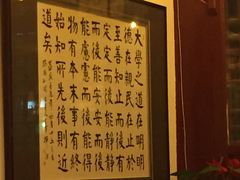 大學之道在明明
德在親民在止於
至善知止而後有
定定而後能靜靜
而後能安安而後
能慮慮而後能得
物有本末事有終
始知所先後則近
道矣